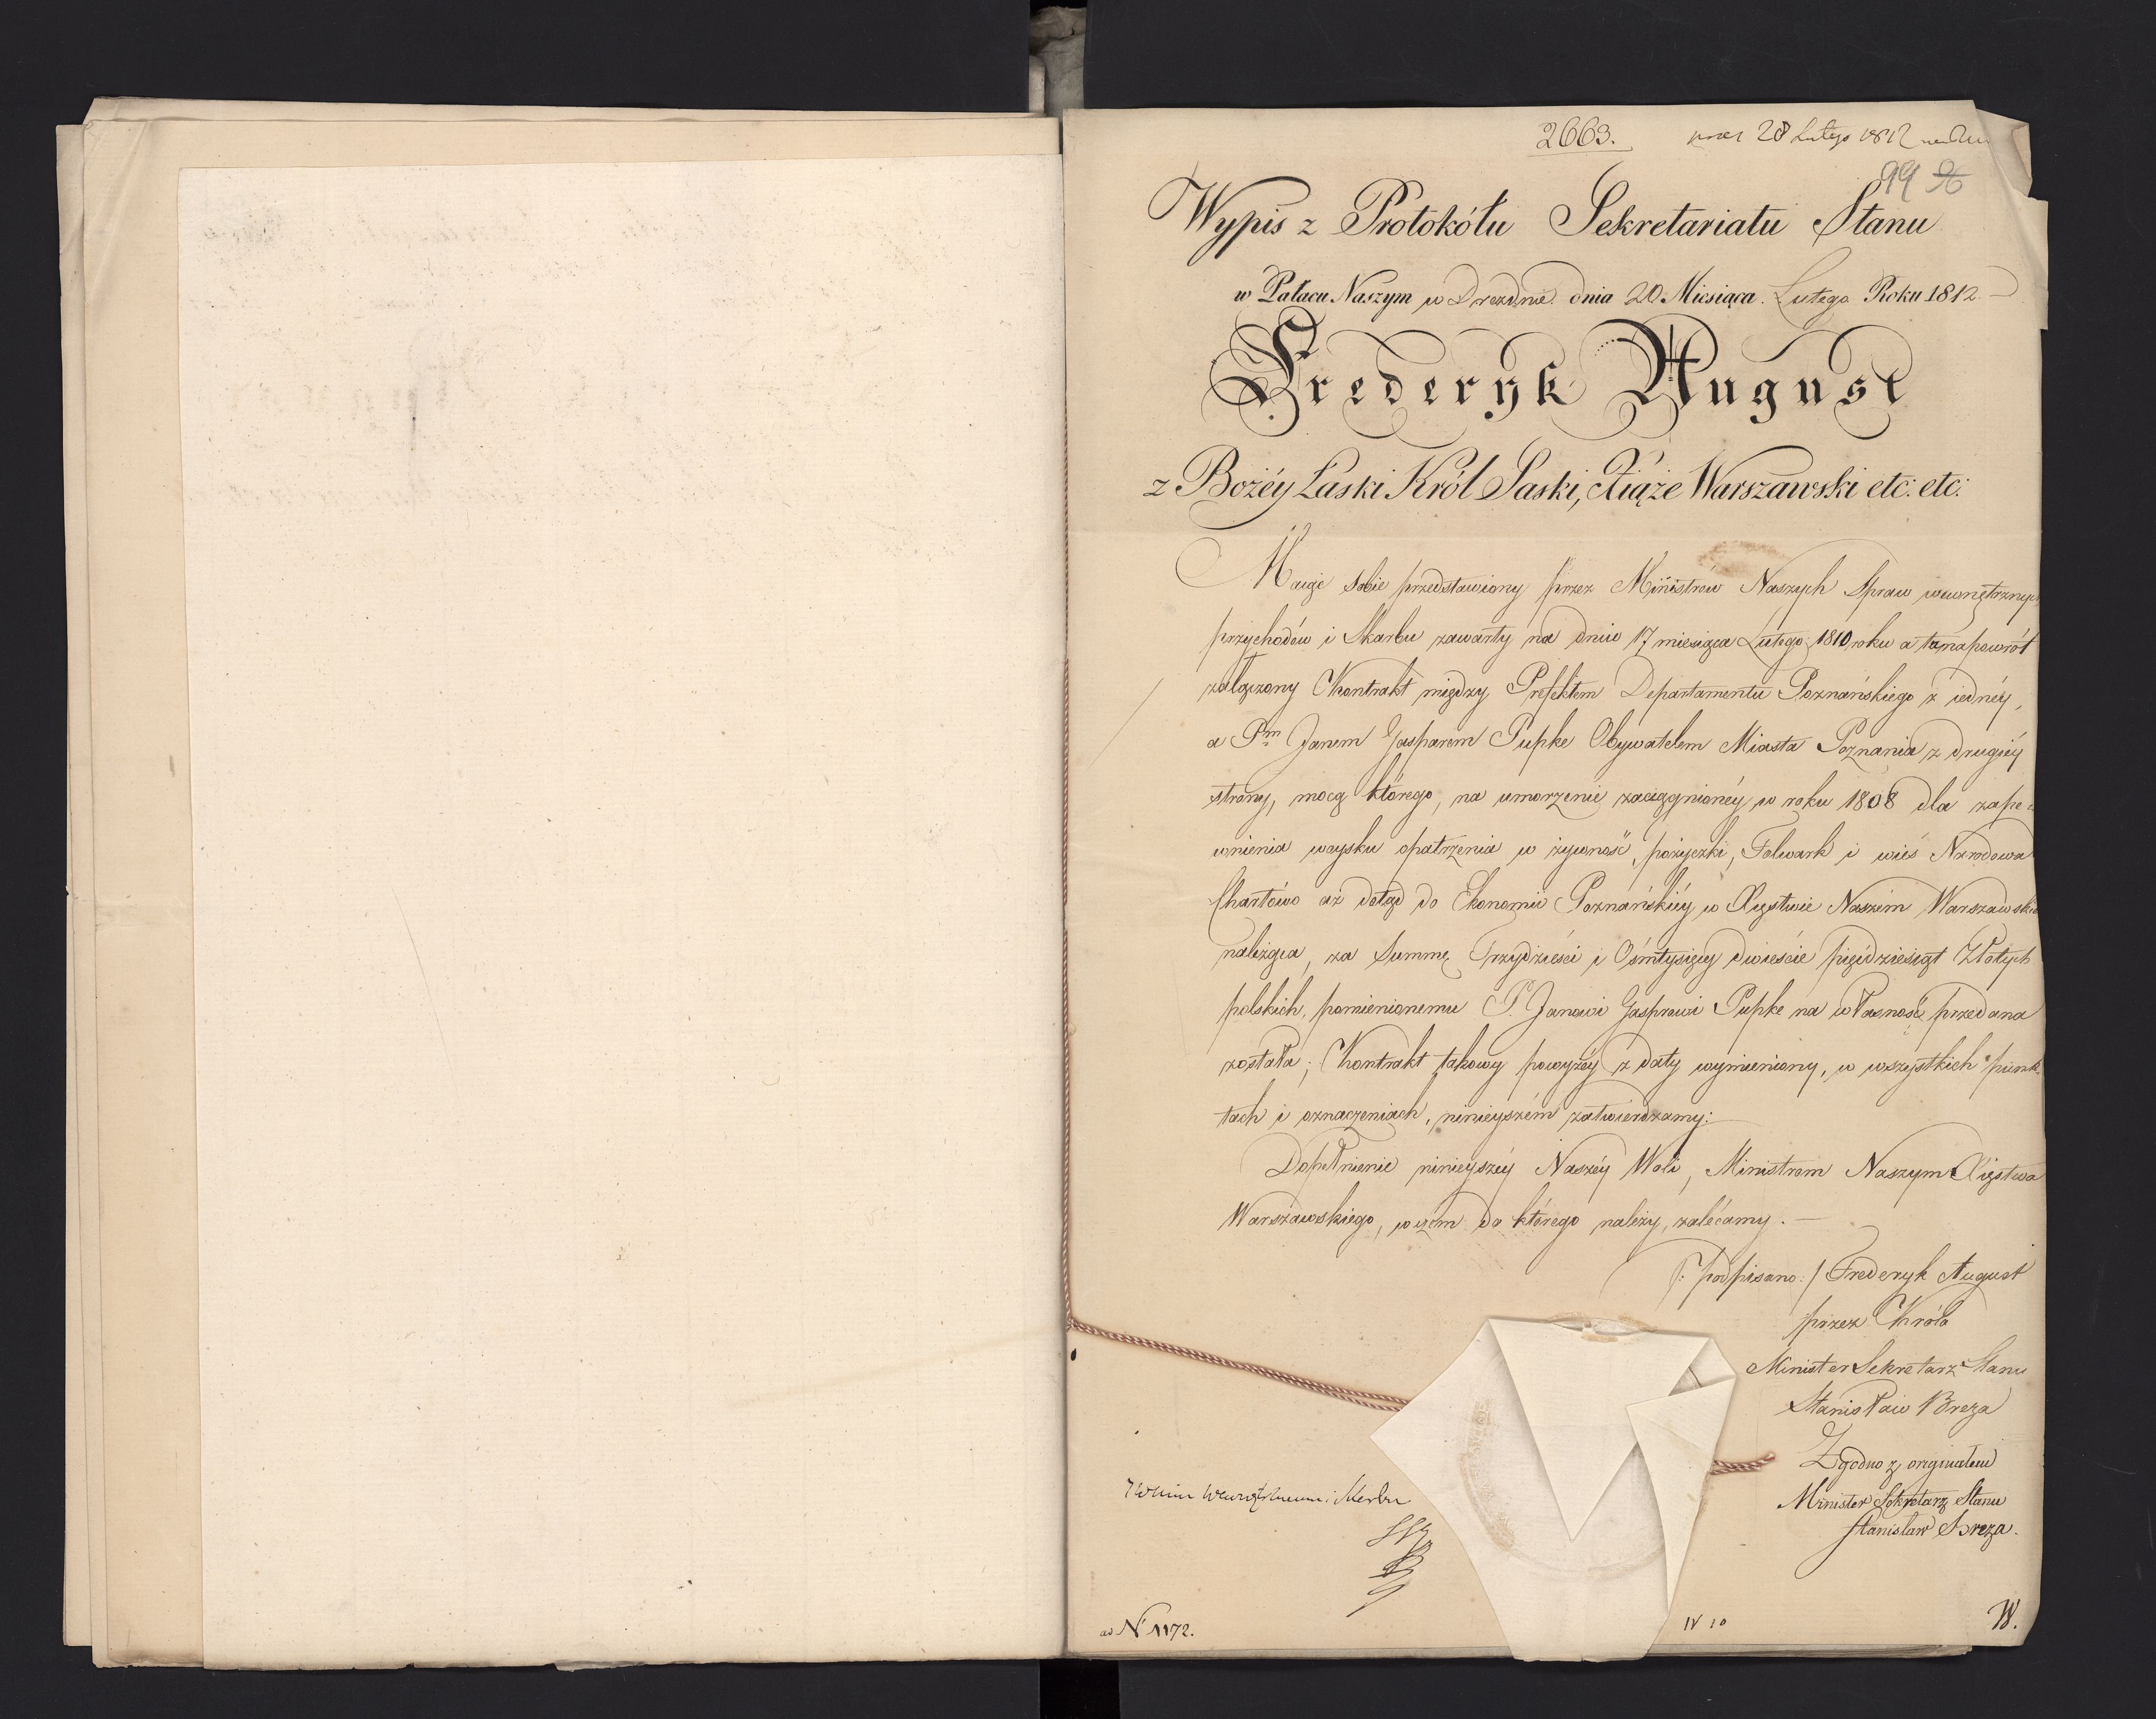 2663.
28 Lutego 1812
94
Wypis z Protokółu Sekretariatu Stanu
w Pałacu Naszym w Dreznie dnia 20 Miesiąca Lutego Roku 1812
Frederyk August
z Bożéy Łaski Król Saski, Xiąże Warszawski etc: etc:
Maiąc sobie przedstawiony przez Ministrów Naszych Spraw wewnętrznych
przychodów i Skarbu zawarty na dniu 17 miesiąca Lutego 1810 roku a tu napowrót
załączony Kontrakt między Prefektem Departamentu Poznańskiego z iednéy,
a Pm Janem Gasparem Pupke Obywatelem Miasta Poznania z drugiéy
strony, mocą którego, na umorzenie zaciągnionéy w roku 1808 dla zape=
wnienia woysku opatrzenia w żywność, pożyczki, Folwark i wieś Narodowa
Chartowo aż dotąd do Ekonomii Poznańskiéy w Xięstwie Naszém Warszawskie
należąca, za Summę Trzydzieści i Ośmtysięcy dwieście pięćdziesiąt Złotych
polskich, pomienionemu P. Janowi Gasprowi Pupke na własność przedana
została; Kontrakt takowy powyżéy z daty wymieniony, w wszystkich punk=
tach i oznaczeniach, ninieyszém zatwierdzamy:
Dopełnienie ninieyszéy Naszéy Woli, Ministrom Naszym Xięstwa
Warszawskiego, w czem do którego należy, zalécamy. —
/: podpisano: / Frederyk August
przez Króla
Minister Sekretarz Stanu
Stanisław Breza
Zgodno z originałem
Minister Sekretarz Stanu
Stanisław Breza.
ad N 1172.
IV 10
W.